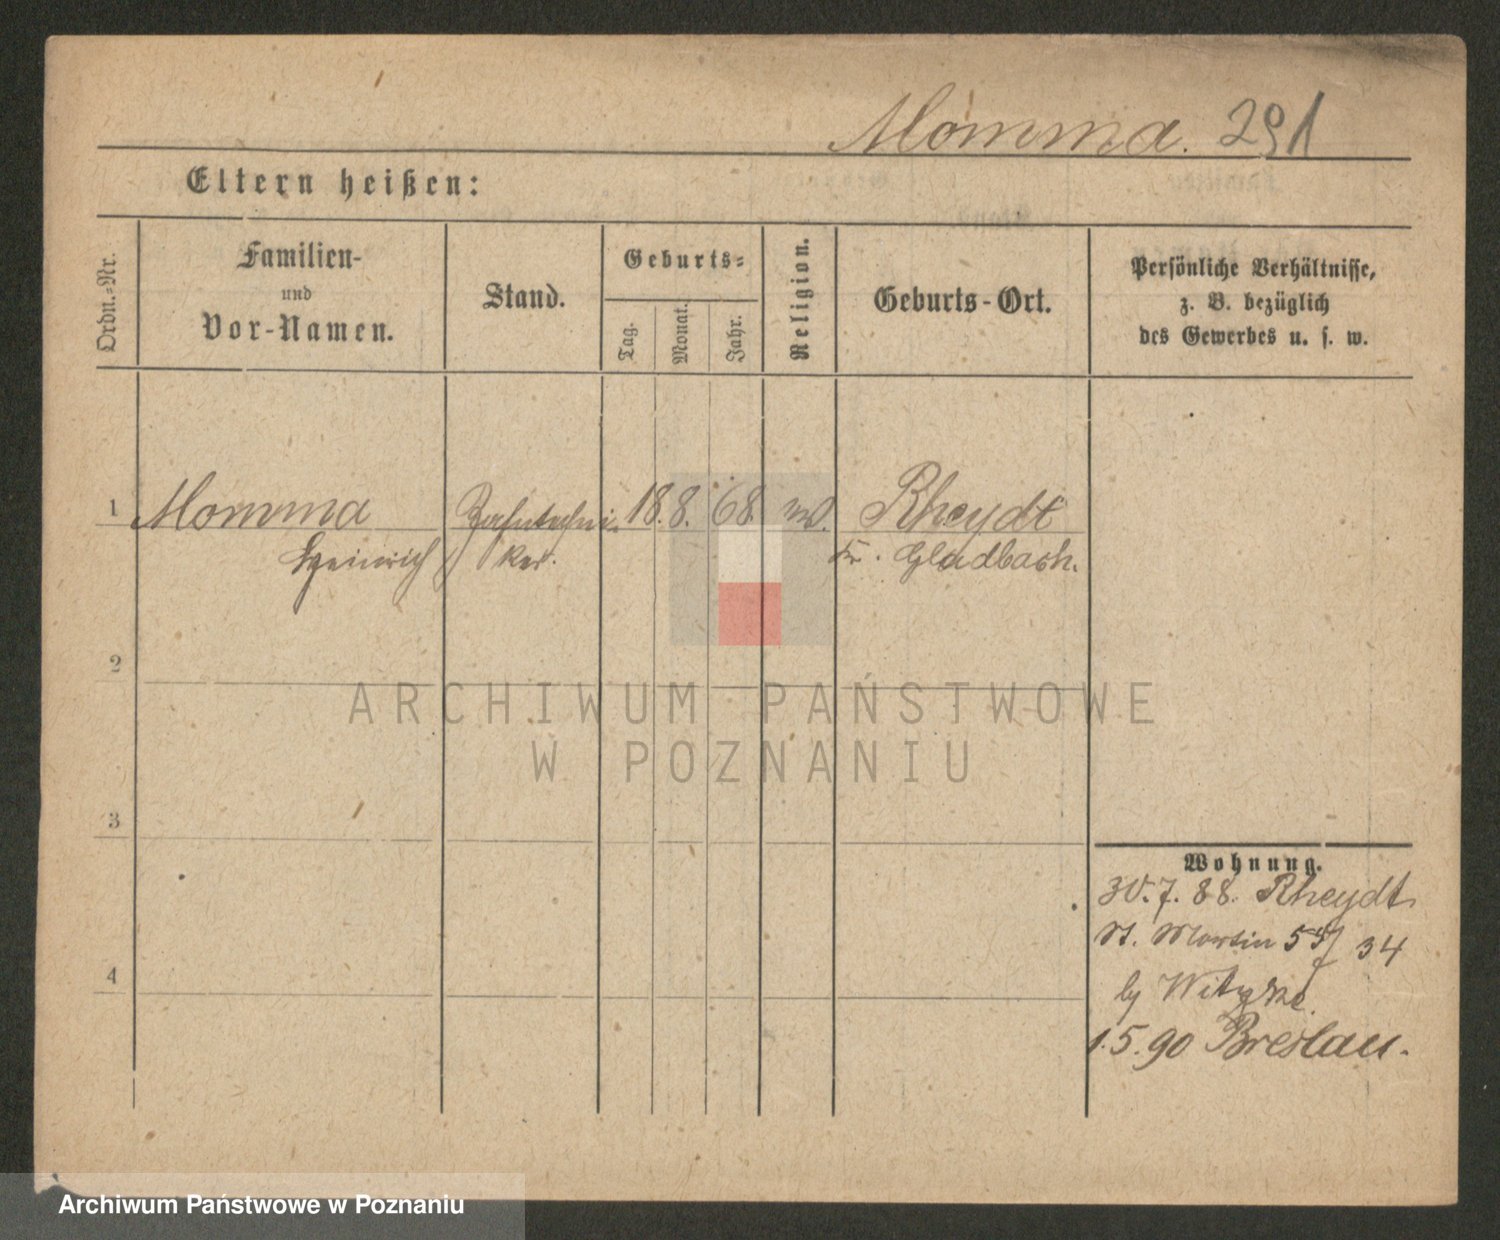 Momma. 291
Eltern heißen:
Ordn.=Nr.
Familien-
und
Vor-Namen.
Stand.
Geburts=
Tag.
Monat.
Jahr.
Religion.
Geburts-Ort.
Persönliche Verhältnisse,
z. B. bezüglich
des Gewerbes u. s. w.
1 Momma Zahntechni- 18. 8. 68. Rheydt
Heinrich ker. Kr. Gladbach.
2
ARCHIWUM PAŃSTWOWE
W POZNANIU
3
Wohnung.
30. 7. 88. Rheydt
St. Martin 34
by Witzke
4
1. 5. 90 Breslau.
Archiwum Państwowe w Poznaniu